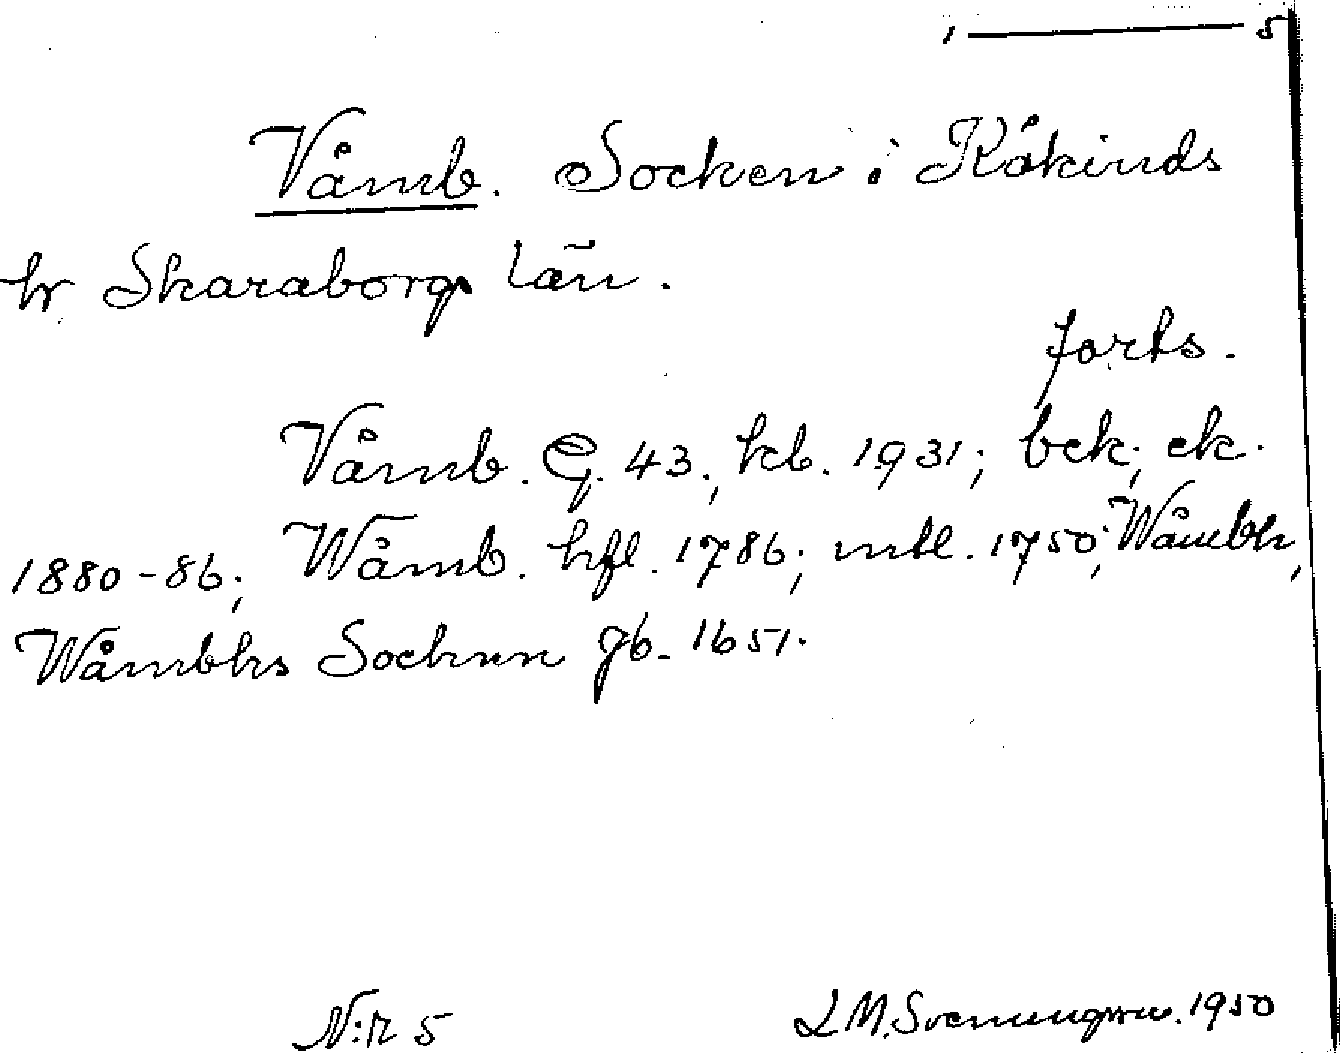 1 — 5
Våmb. Socken i Kåkinds
hr Skaraborgs län.
forts.
Våmb. G. 43., kb. 1931; bck; ek.
1880-86; Wåmb. hfl. 1786; mtl. 1750; Wåmbh,
Wåmbhs Sochnn Jb. 1651.
N:r 5
L M. Svenungsson. 1950